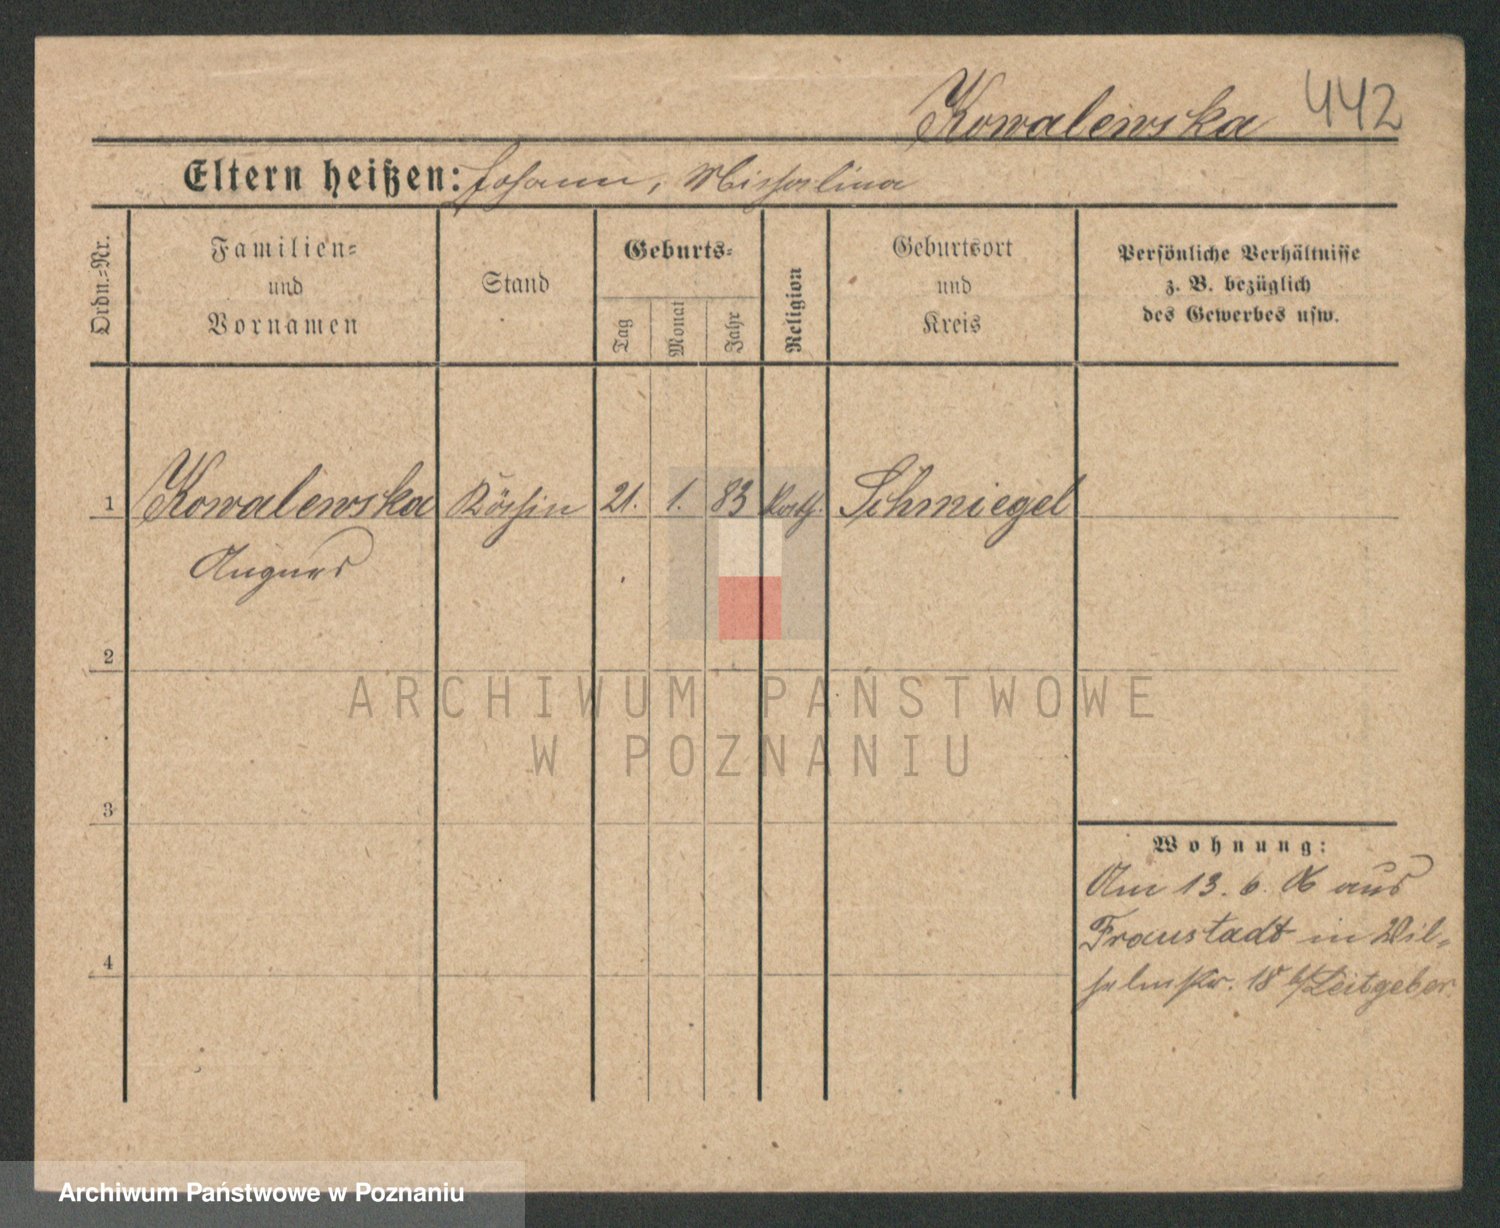 Kowalewska 442
Eltern heißen: Johann, Michalina
Ordn.-Nr.
Familien-
und
Vornamen
Stand
Geburts-
Tag
Monat
Jahr
Religion
Geburtsort
und
Kreis
Persönliche Verhältnisse
z. B. bezüglich
des Gewerbes usw.
1 Kowalewska Köchin 21. 1. 83 kath. Schmiegel
Agnes
2
3
4
Wohnung:
Am 13. 6. 06 aus
Fraustadt in Wil-
helmstr. 18 b/Leitgeber
ARCHIWUM PAŃSTWOWE
W POZNANIU
Archiwum Państwowe w Poznaniu